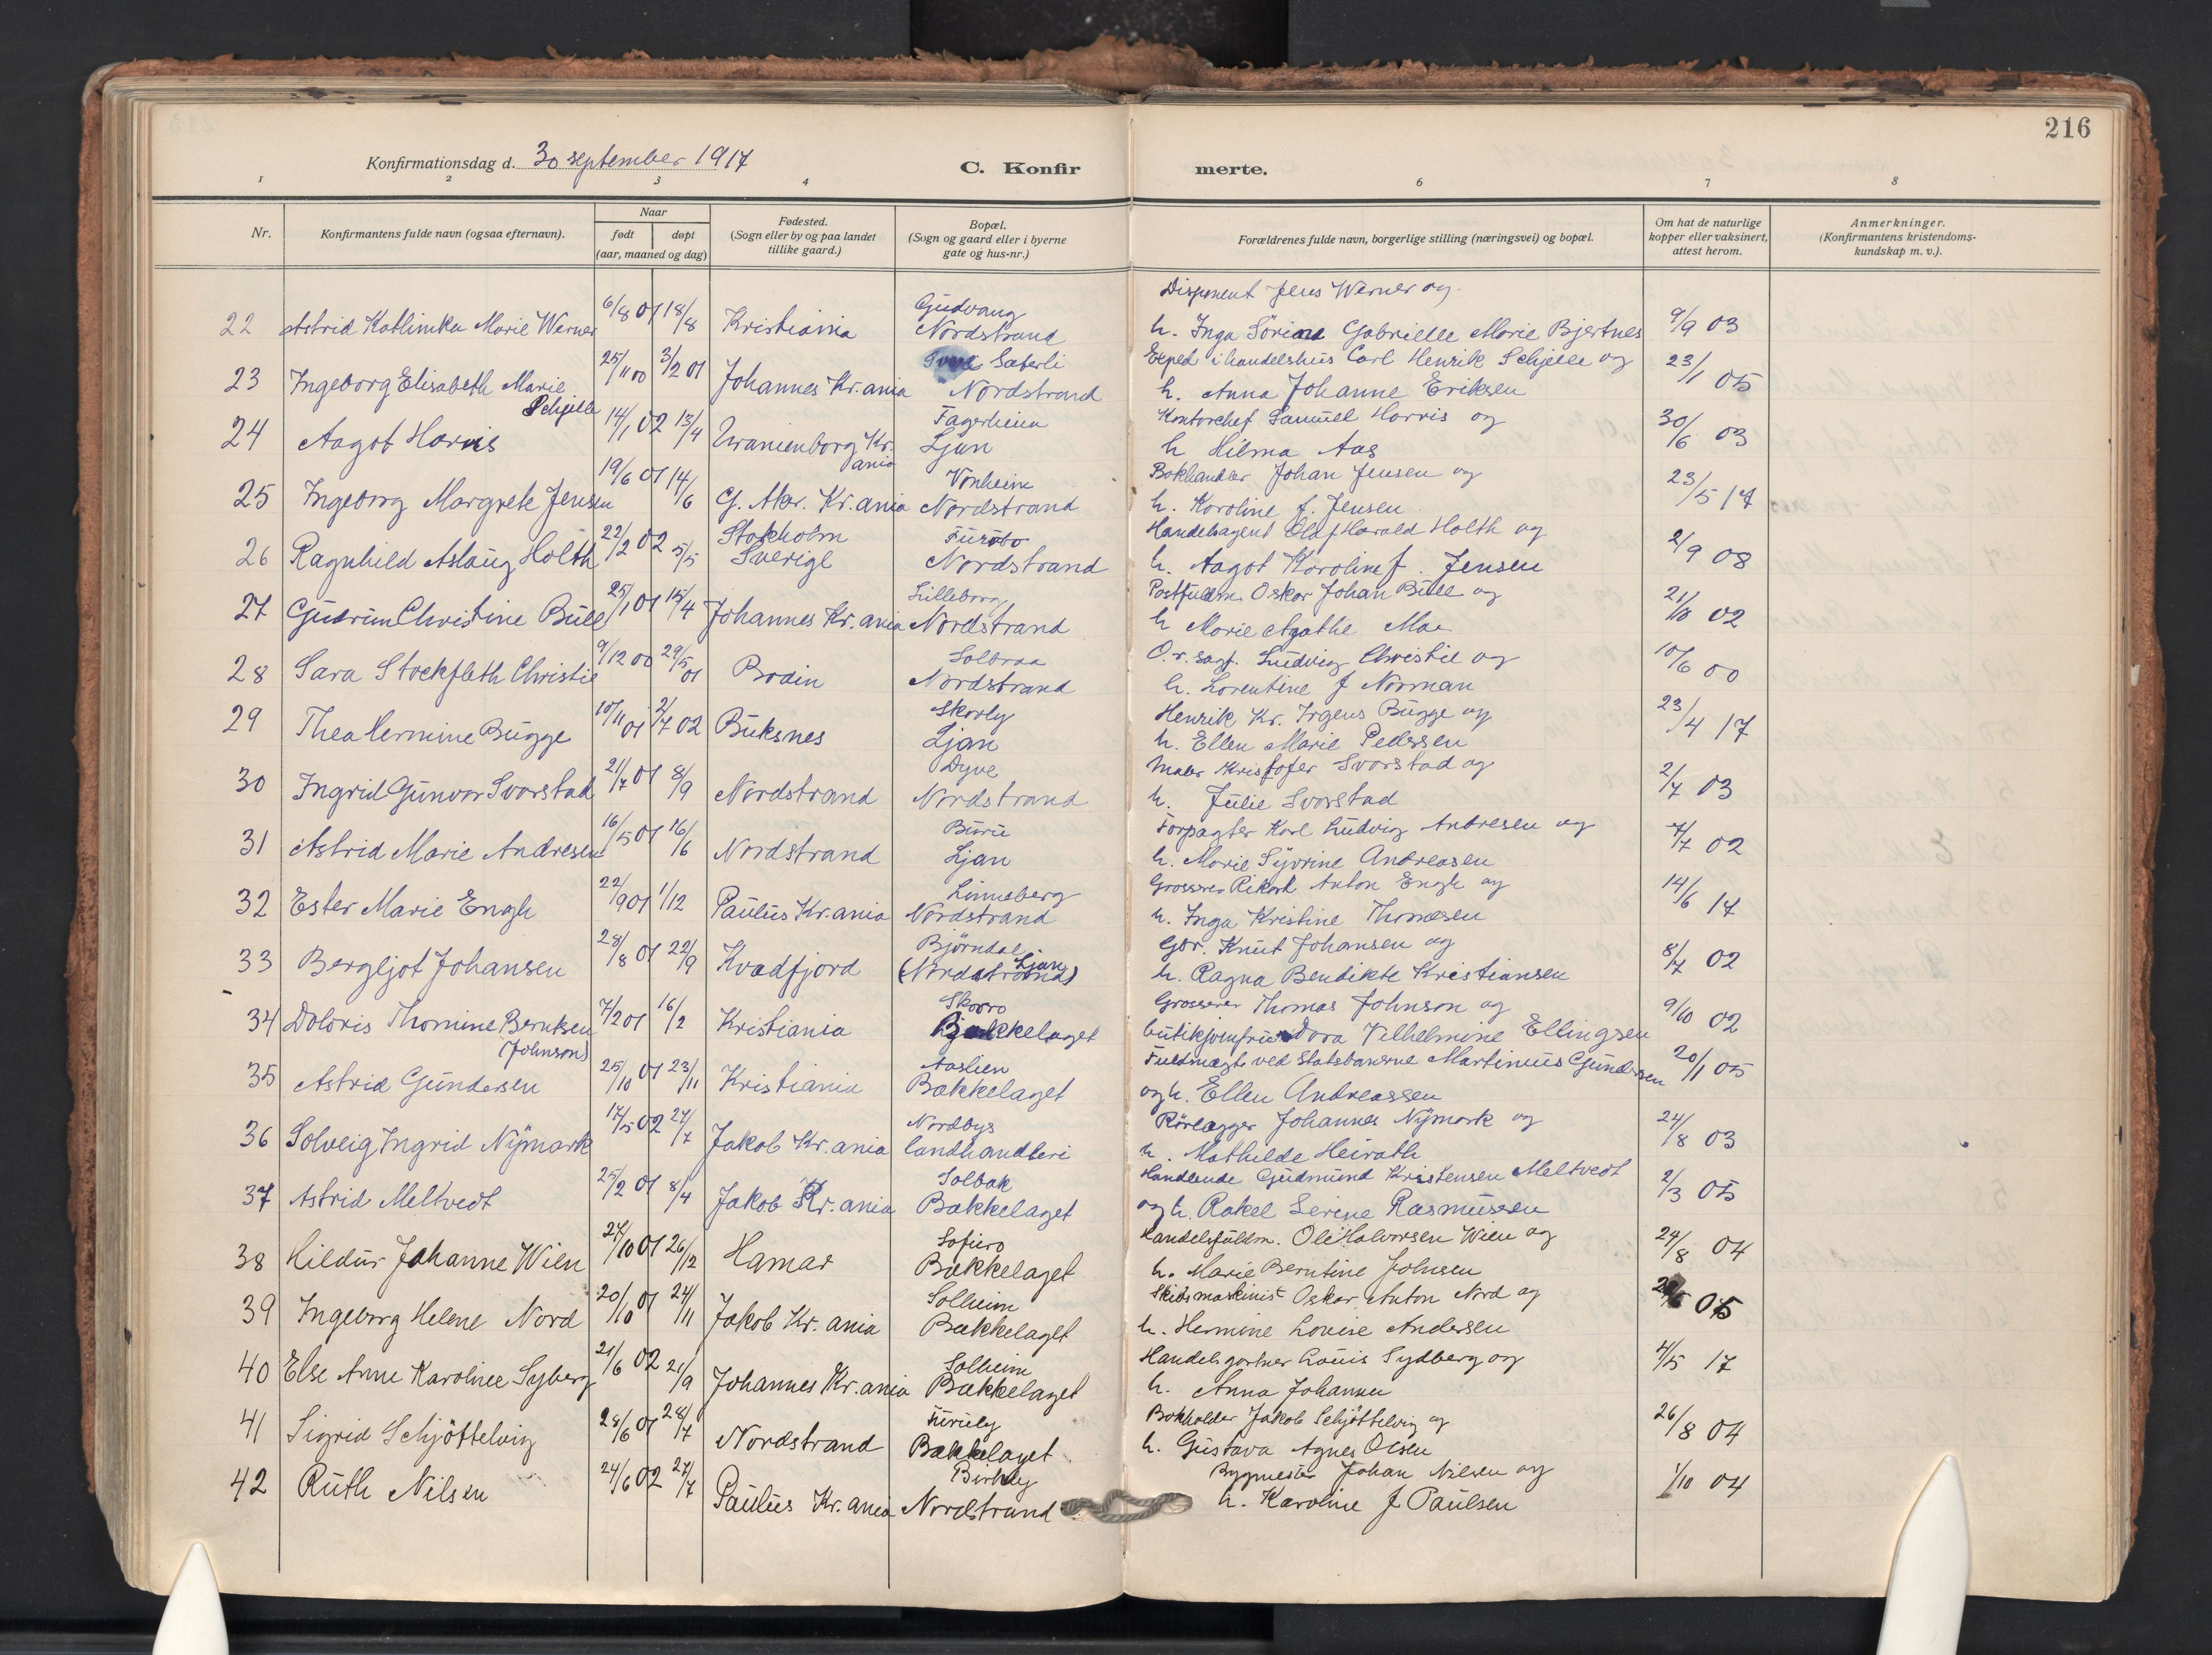 216
Konfirmationsdag d. 30 september 1917
C. Konfir merte.
1 2 3 4 6 7 8
Nr.
Konfirmantens fulde navn (ogsaa efternavn).
Naar
født døpt
(aar, maaned og dag)
Fødested.
(Sogn eller by og paa landet
tillike gaard.)
Bopæl.
(Sogn og gaard eller i byerne
gate og hus-nr.)
Forældrenes fulde navn, borgerlige stilling (næringsvei) og bopæl.
Om hat de naturlige
kopper eller vaksinert,
attest herom.
Anmerkninger.
(Konfirmantens kristendoms-
kundskap m. v.).
Gudvang Disponent Jens Werner og
22 Astrid Kathinka Marie Werner 6/8 01 18/8 Kristiania Nordstrand h. Inga Sörine Gabrielle Marie Bjertnes 9/9 03
Sæterli Exped. i handelshus Carl Henrik Schjelle og
23 Ingeborg Elisabeth Marie Schjelle 25/11 00 3/2 01 Johannes Kr.ania Nordstrand h. Anna Johanne Eriksen 23/1 05
Fagerheim Kontorchef Samuel Harris og
24 Aagot Harris 14/1 02 13/4 Uranienborg Kr.ania Ljan h Hilma Aas 30/6 03
Vonheim Bokhandler Johan Jensen og
25 Ingeborg Margrete Jensen 19/6 01 14/6 G. Aker. Kr.ania Nordstrand h. Karoline f. Jensen 23/5 17
Stokholm Furubo Handelsagent Olaf Harald Holth og
26 Ragnhild Aslaug Holth 22/2 02 5/5 Sverige Nordstrand h. Aagot Karoline f. Jensen 2/9 08
Lilleborg Postfuldm. Oskar Johan Bull og
27 Gudrun Christine Bull 25/1 01 15/4 Johannes Kr.ania Nordstrand h Marie Agathe Moe 21/10 02
Solbraa O.r.sagf. Ludvig Christie og
28 Sara Stockfleth Christie 9/12 00 29/5 01 Bodin Nordstrand h. Lorentine f Norman 10/6 00
Skorly Henrik Kr. Irgens Bugge og
29 Thea Hermine Bugge 10/11 01 2/7 02 Buksnes Ljan h. Ellen Marie Pedersen 23/4 17
Dyve Maler Kristofer Svorstad og
30 Ingrid Gunvor Svorstad 21/7 01 8/9 Nordstrand Nordstrand h. Julie Svorstad 2/7 03
Buru Forpagter Karl Ludvig Andresen og
31 Astrid Marie Andresen 16/5 01 16/6 Nordstrand Ljan h. Marie Syvrine Andreasen 7/7 02
Linneberg Grosserer Rikard Anton Engh og
32 Ester Marie Engh 22/9 01 1/12 Paulus Kr.ania Nordstrand h. Inga Kristine Thomesen 14/6 17
Björndal Gbr. Knut Johansen og
33 Bergljot Johansen 28/8 01 22/9 Kvædfjord (Nordstrand) Ljan h. Ragna Bendikte Kristiansen 8/7 02
Skovro Grosserer Thomas Johnson og
34 Doloris Thomine Berntsen (Johnson) 7/2 01 16/2 Kristiania Bækkelaget butikjomfru Dora Vilhelmine Ellingsen 9/10 02
Aaslien Fuldmægt. ved Statsbanerne Martinius Gundersen
35 Astrid Gundersen 25/10 01 23/11 Kristiania Bækkelaget og h. Ellen Andreassen 20/1 05
Nordbys Rörlægger Johannes Nymark og
36 Solveig Ingrid Nymark 17/5 02 27/7 Jakob Kr.ania landhandleri h. Mathilde Heirath 24/8 03
Solbak Handlende Gudmund Kristensen Meltvedt
37 Astrid Meltvedt 25/2 01 8/4 Jakob Kr.ania Bækkelaget og h. Rakel Serine Rasmussen 2/3 05
Sofiero Handelsfuldm. Ole Halvorsen Wien og
38 Hildur Johanne Wien 27/10 01 26/12 Hamar Bækkelaget h. Marie Berntine Johnsen 24/8 04
Solheim Skibsmaskinist Oskar Anton Nord og
39 Ingeborg Helene Nord 20/10 01 24/11 Jakob Kr.ania Bækkelaget h. Hermine Louise Andersen 05
Solheim Handelsgartner Louis Sydberg og
40 Else Anne Karoline Syberg 21/6 02 21/9 Johannes Kr.ania Bækkelaget h. Anna Johansen 4/5 17
Furuly Bokholder Jakob Schjöttelvig og
41 Sigrid Schjöttelvig 28/6 01 28/7 Nordstrand Bækkelaget h. Gustava Agnes Olsen 26/8 04
Birkely Bygmester Johan Nilsen og
42 Ruth Nilsen 24/6 02 27/7 Paulus Kr.ania Nordstrand h. Karoline f Paulsen 1/10 04